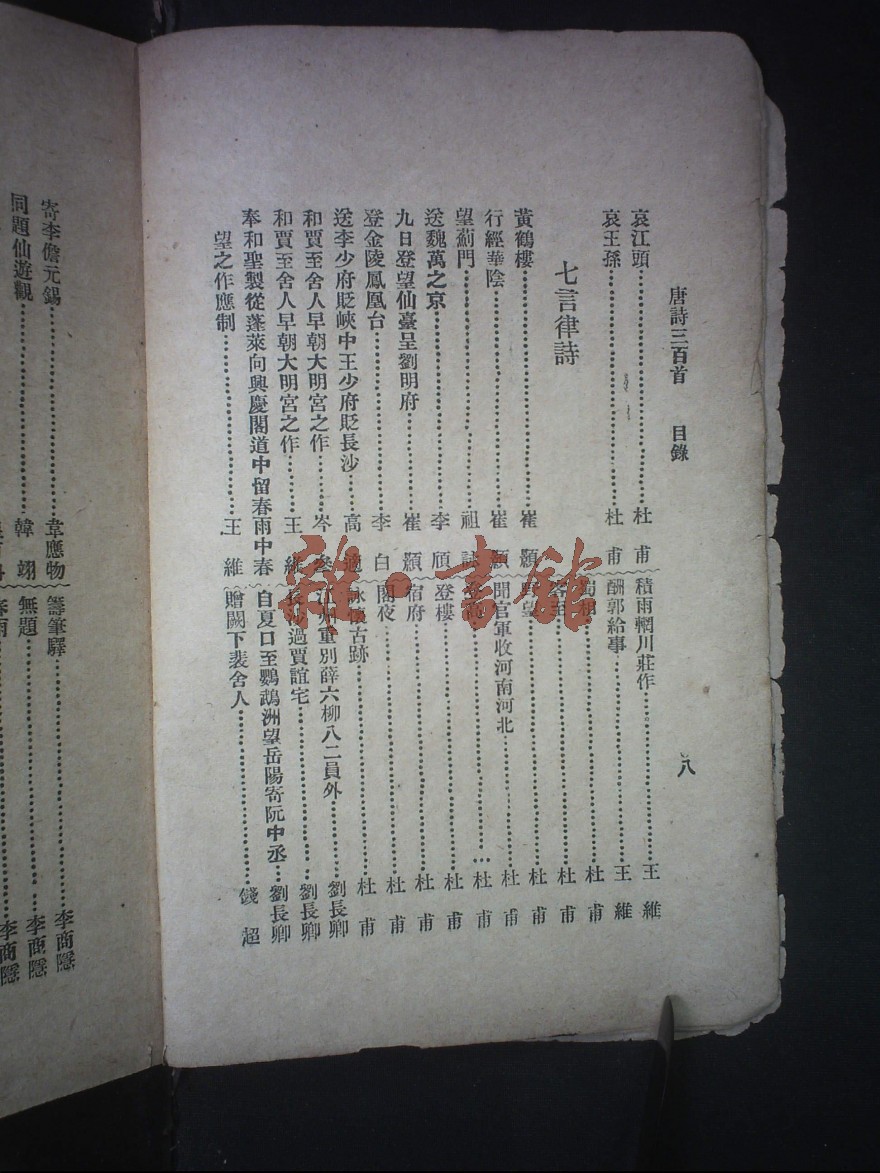 唐詩三百首 目錄
八
哀江頭 杜甫
哀王孫 杜甫
七言律詩
黃鶴樓 崔顥
行經華陰 崔顥
望薊門 祖
送魏萬之京 李頎
九日登望仙臺呈劉明府 崔顥
登金陵鳳凰台 李白
送李少府貶峽中王少府貶長沙 高適
和賈至舍人早朝大明宮之作 岑參
和賈至舍人早朝大明宮之作 王維
奉和聖製從蓬萊向興慶閣道中留春雨中春
望之作應制 王維
積雨輞川莊作 王維
酬郭給事 王維
蜀相 杜甫
客至 杜甫
野望 杜甫
聞官軍收河南河北 杜甫
登高 杜甫
登樓 杜甫
宿府 杜甫
閣夜 杜甫
詠懷古跡 杜甫
江州重別薛六柳八二員外 劉長卿
長沙過賈誼宅 劉長卿
自夏口至鸚鵡洲望岳陽寄阮中丞 劉長卿
贈闕下裴舍人 錢超
寄李儋元錫 韋應物
同題仙遊觀 韓翃
籌筆驛 李商隱
無題 李商隱
春雨 李商隱
雜·書館